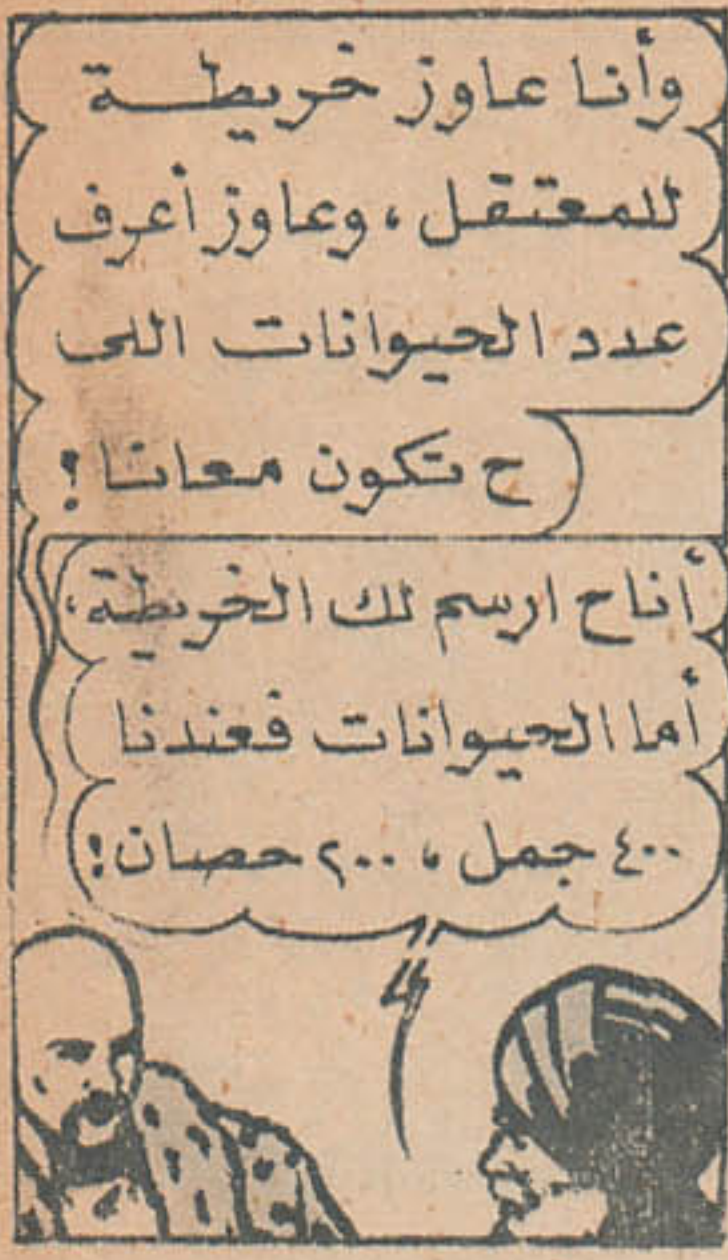 وأنا عاوز خريطة
للمعتقل، وعاوز أعرف
عدد الحيوانات اللى
ح تكون معانا!
أنا ح ارسم لك الخريطة،
أما الحيوانات فعندنا
٤٠٠ جمل، ٢٠٠ حصان!